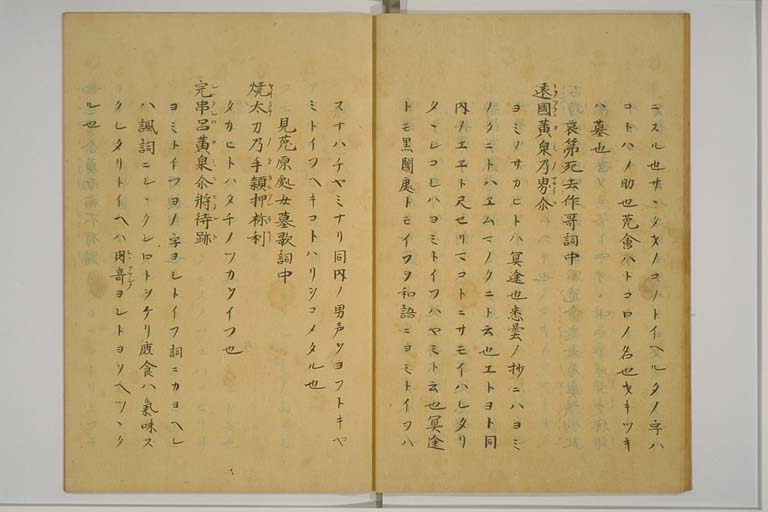 ニスル也サンタ久ノコノトイヘルタノ字ハ
コトハノ助也菟會ハトコロノ名也オキツキ
ハ墓也
哀弟死去作哥詞中
遠國黄泉乃界尒
ヨミノサカヒトハ冥途也悉曇ノ抄ニハヨミ
ノクニトハエムマノクニト云也エトヨト同
内ノエヱト尺セリマコトニサモイハレタリ
タヽシコレハヨミトイフハヤミト云也冥途
トモ黒闇處トモイフヲ和語ニヨミトイフハ
スナハチヤミナリ同内ノ男声ツヨフトキヤ
ミトイフヘキコトハリシコメタル也
見菟原處女墓歌詞中
焼太刀乃手頴押祢利
タカヒトハタチノツカヲイフ也
完串呂黄泉尒將待跡
ヨミトイフヨノ字ヨシトイフ詞ニカヨヘレ
ハ諷詞ニシヽクシロトツヽケリ庋食ハ氣味ス
クレタリトイヘハ肉奇ヨシトヨソヘツヽク
ル也